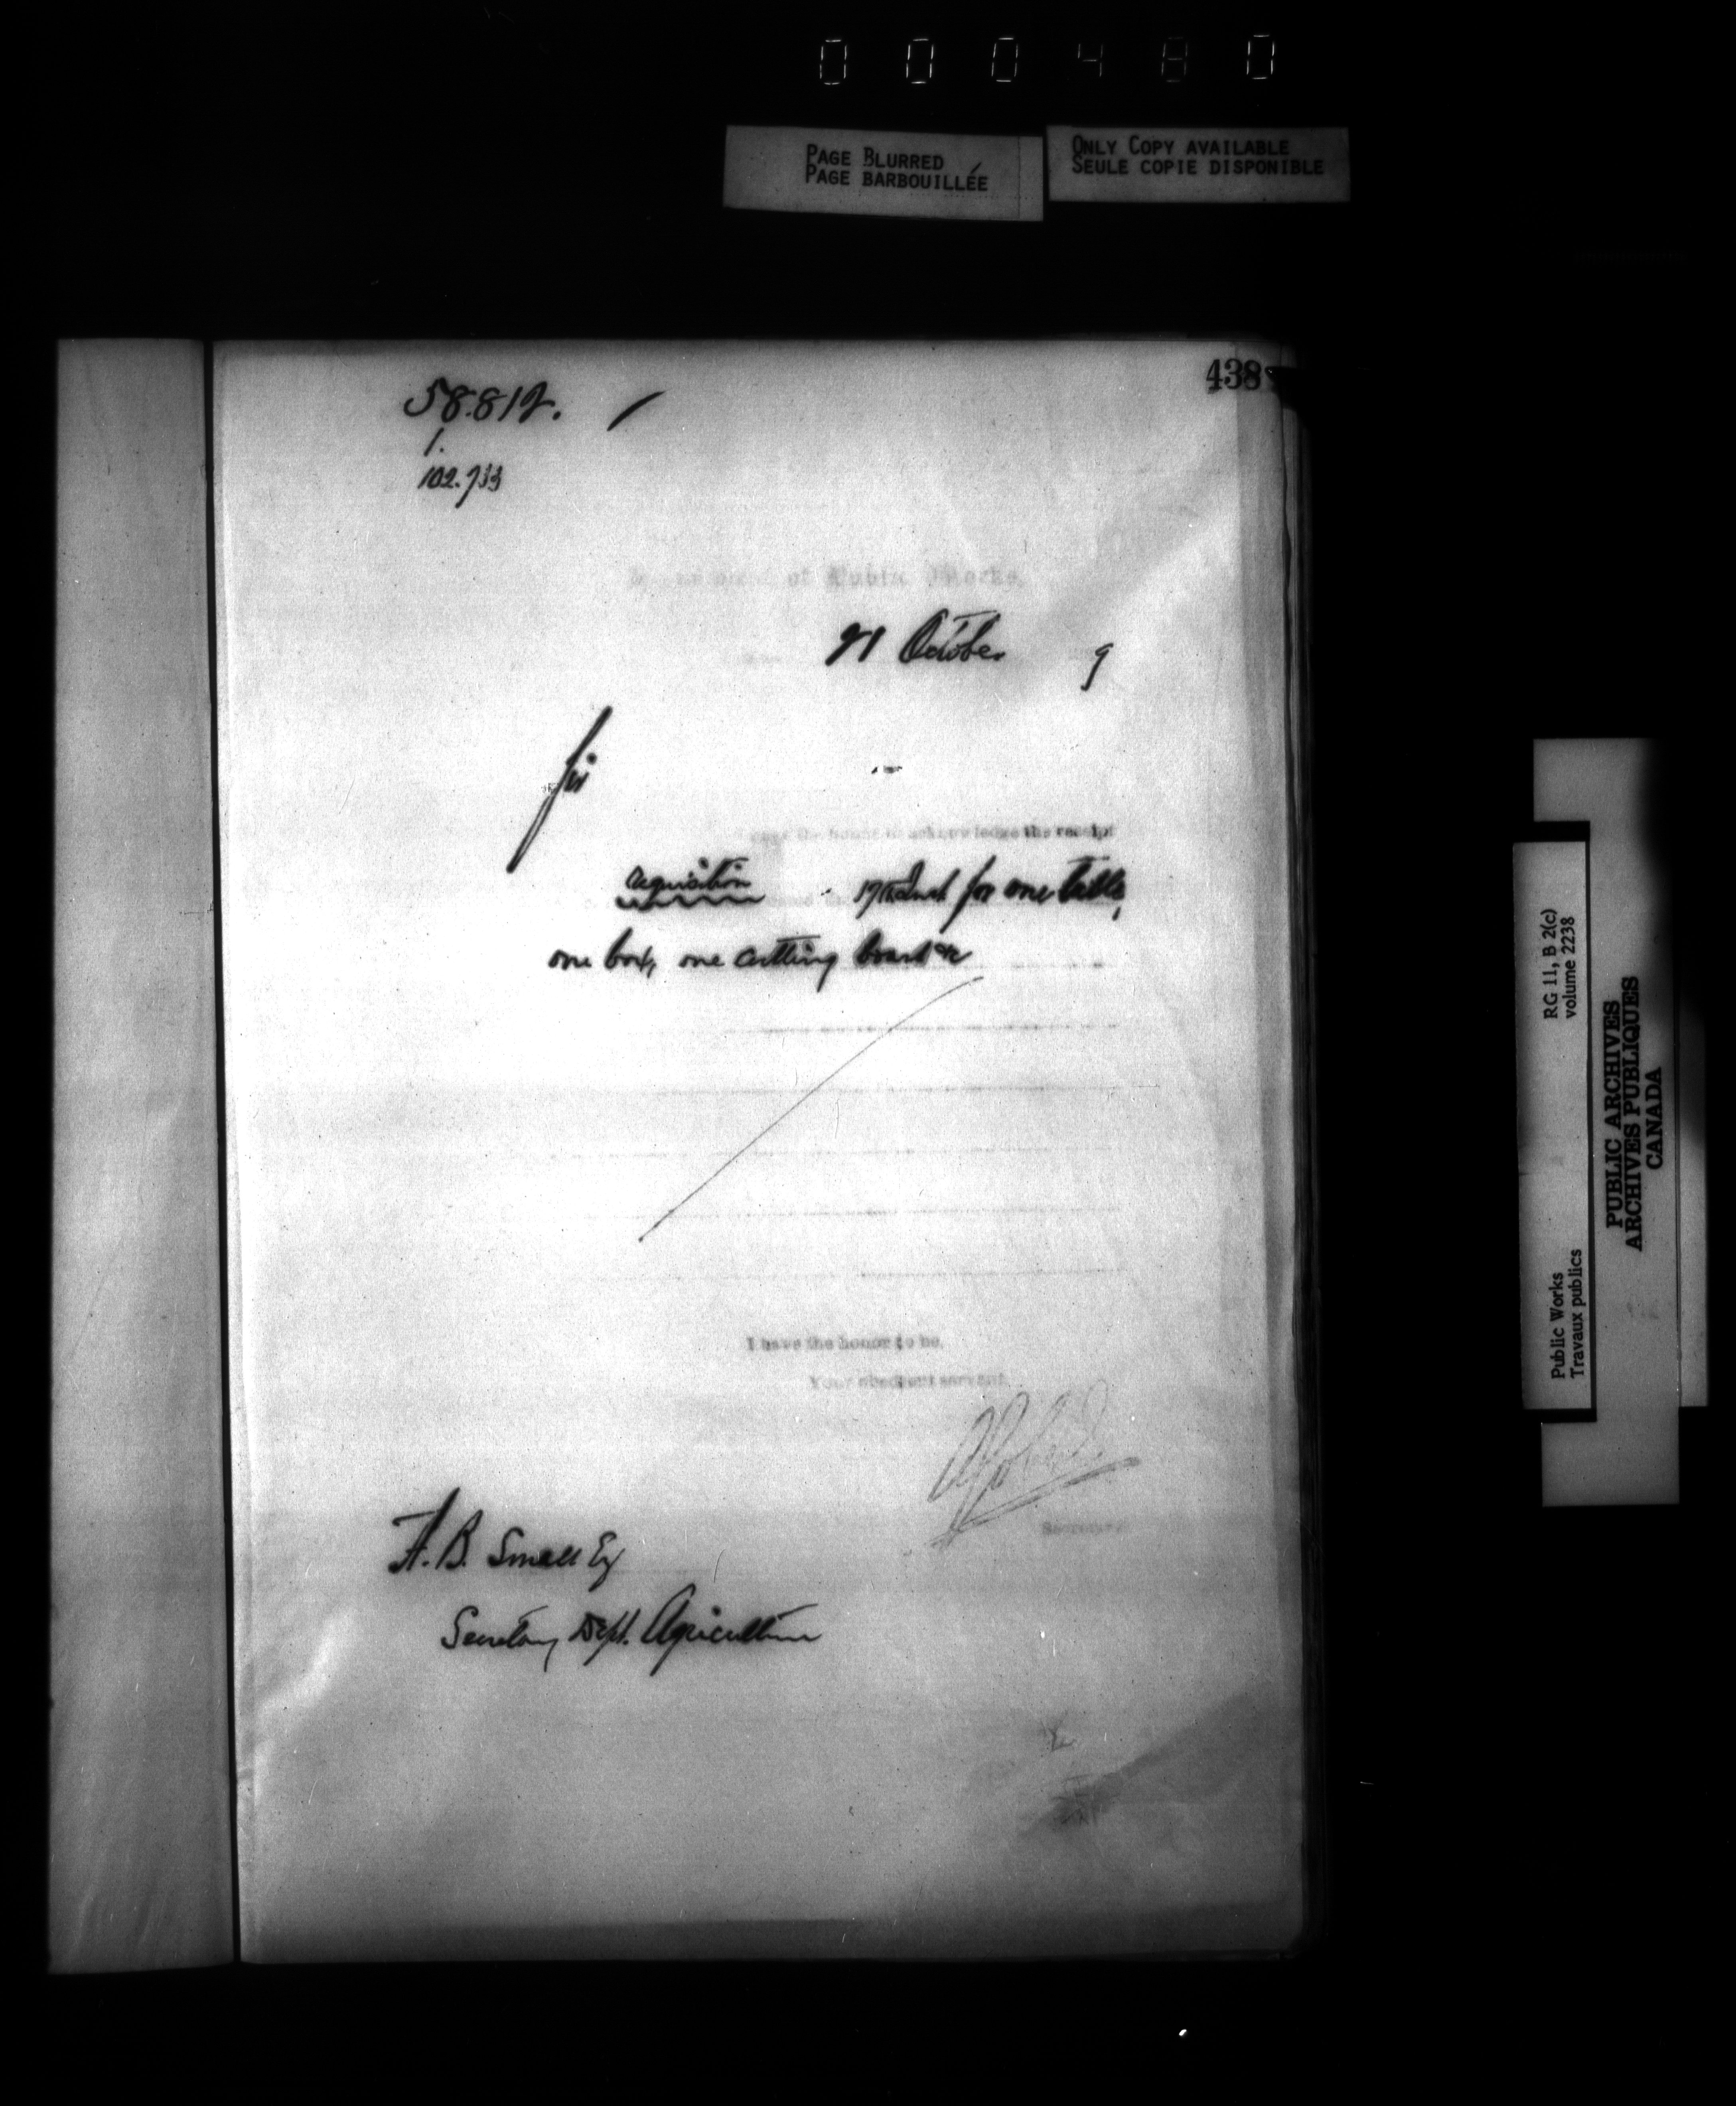 000480
PAGE BLURRED
PAGE BARBOUILLÉE
ONLY COPY AVAILABLE
SEULE COPIE DISPONIBLE
438
58.812.
1.
102.733
of Public Works,
21 October 9
Sir
have the honor to acknowledge the receipt
requisition 17th Inst for one table,
one box, one cutting board &c
I have the honor to be,
Your obedient servant,
Secretary
H. B. Small Esq
Secretary Dept. Agriculture
RG 11, B 2(c)
volume 2238
Public Works
Travaux publics
PUBLIC ARCHIVES
ARCHIVES PUBLIQUES
CANADA